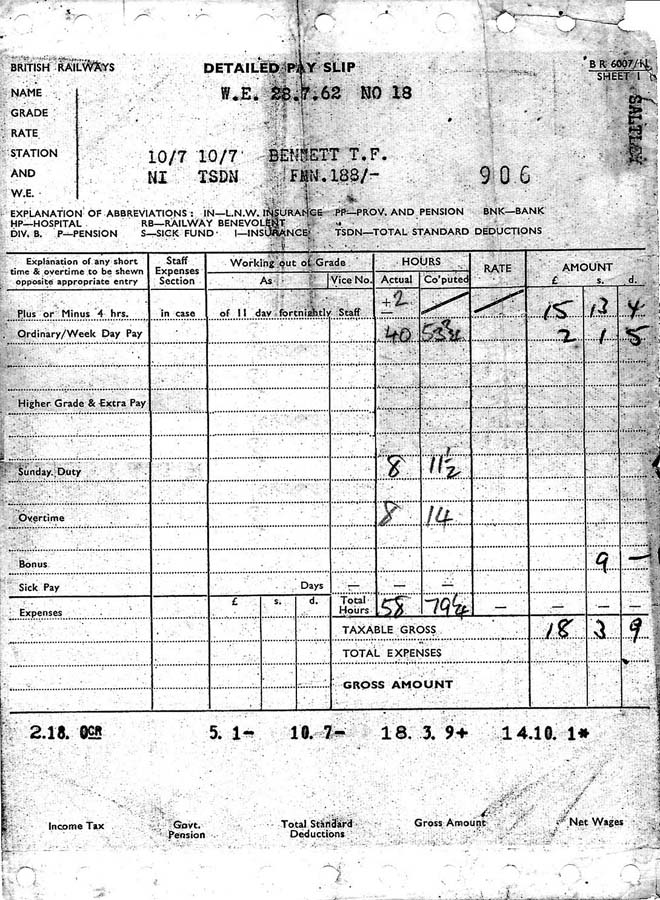 BRITISH RAILWAYS DETAILED PAY SLIP B R 6007/
SHEET 1
NAME W.E. 28.7.62 NO 18
SALTLEY
GRADE
RATE
STATION 10/7 10/7 BENNETT T.F.
AND NI TSDN FMN.188/- 906
W.E.
EXPLANATION OF ABBREVIATIONS: IN—L.N.W. INSURANCE PF—PROV. AND PENSION BNK—BANK
HP—HOSPITAL RB—RAILWAY BENEVOLENT
DIV. B. P—PENSION S—SICK FUND I—INSURANCE TSDN—TOTAL STANDARD DEDUCTIONS
Explanation of any short time & overtime to be shewn opposite appropriate entry
Staff Expenses Section
Working out of Grade
As Vice No.
HOURS
Actual Co'puted
RATE
AMOUNT
£ s. d.
Plus or Minus 4 hrs. in case of 11 day fortnightly Staff +2 15 13 4
Ordinary/Week Day Pay 40 53¾ 2 1 5
Higher Grade & Extra Pay
Sunday Duty 8 11½
Overtime 8 14
Bonus 9 —
Sick Pay Days — — — 
Expenses £ s. d. Total Hours 58 79¼ — — — —
TAXABLE GROSS 18 3 9
TOTAL EXPENSES
GROSS AMOUNT
2.18. 0CR 5. 1- 10. 7- 18. 3. 9+ 14.10. 1*
Income Tax Govt. Pension Total Standard Deductions Gross Amount Net Wages